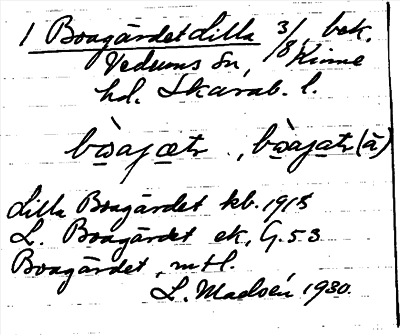 1 Boagärdet Lilla 3/8 bek.
Vedums Sn, Kinne
hd. Skarab. l.
Lilla Boagärdet kb. 1915
L. Boagärdet ek, G. 53
Boagärdet, mtl.
1930.